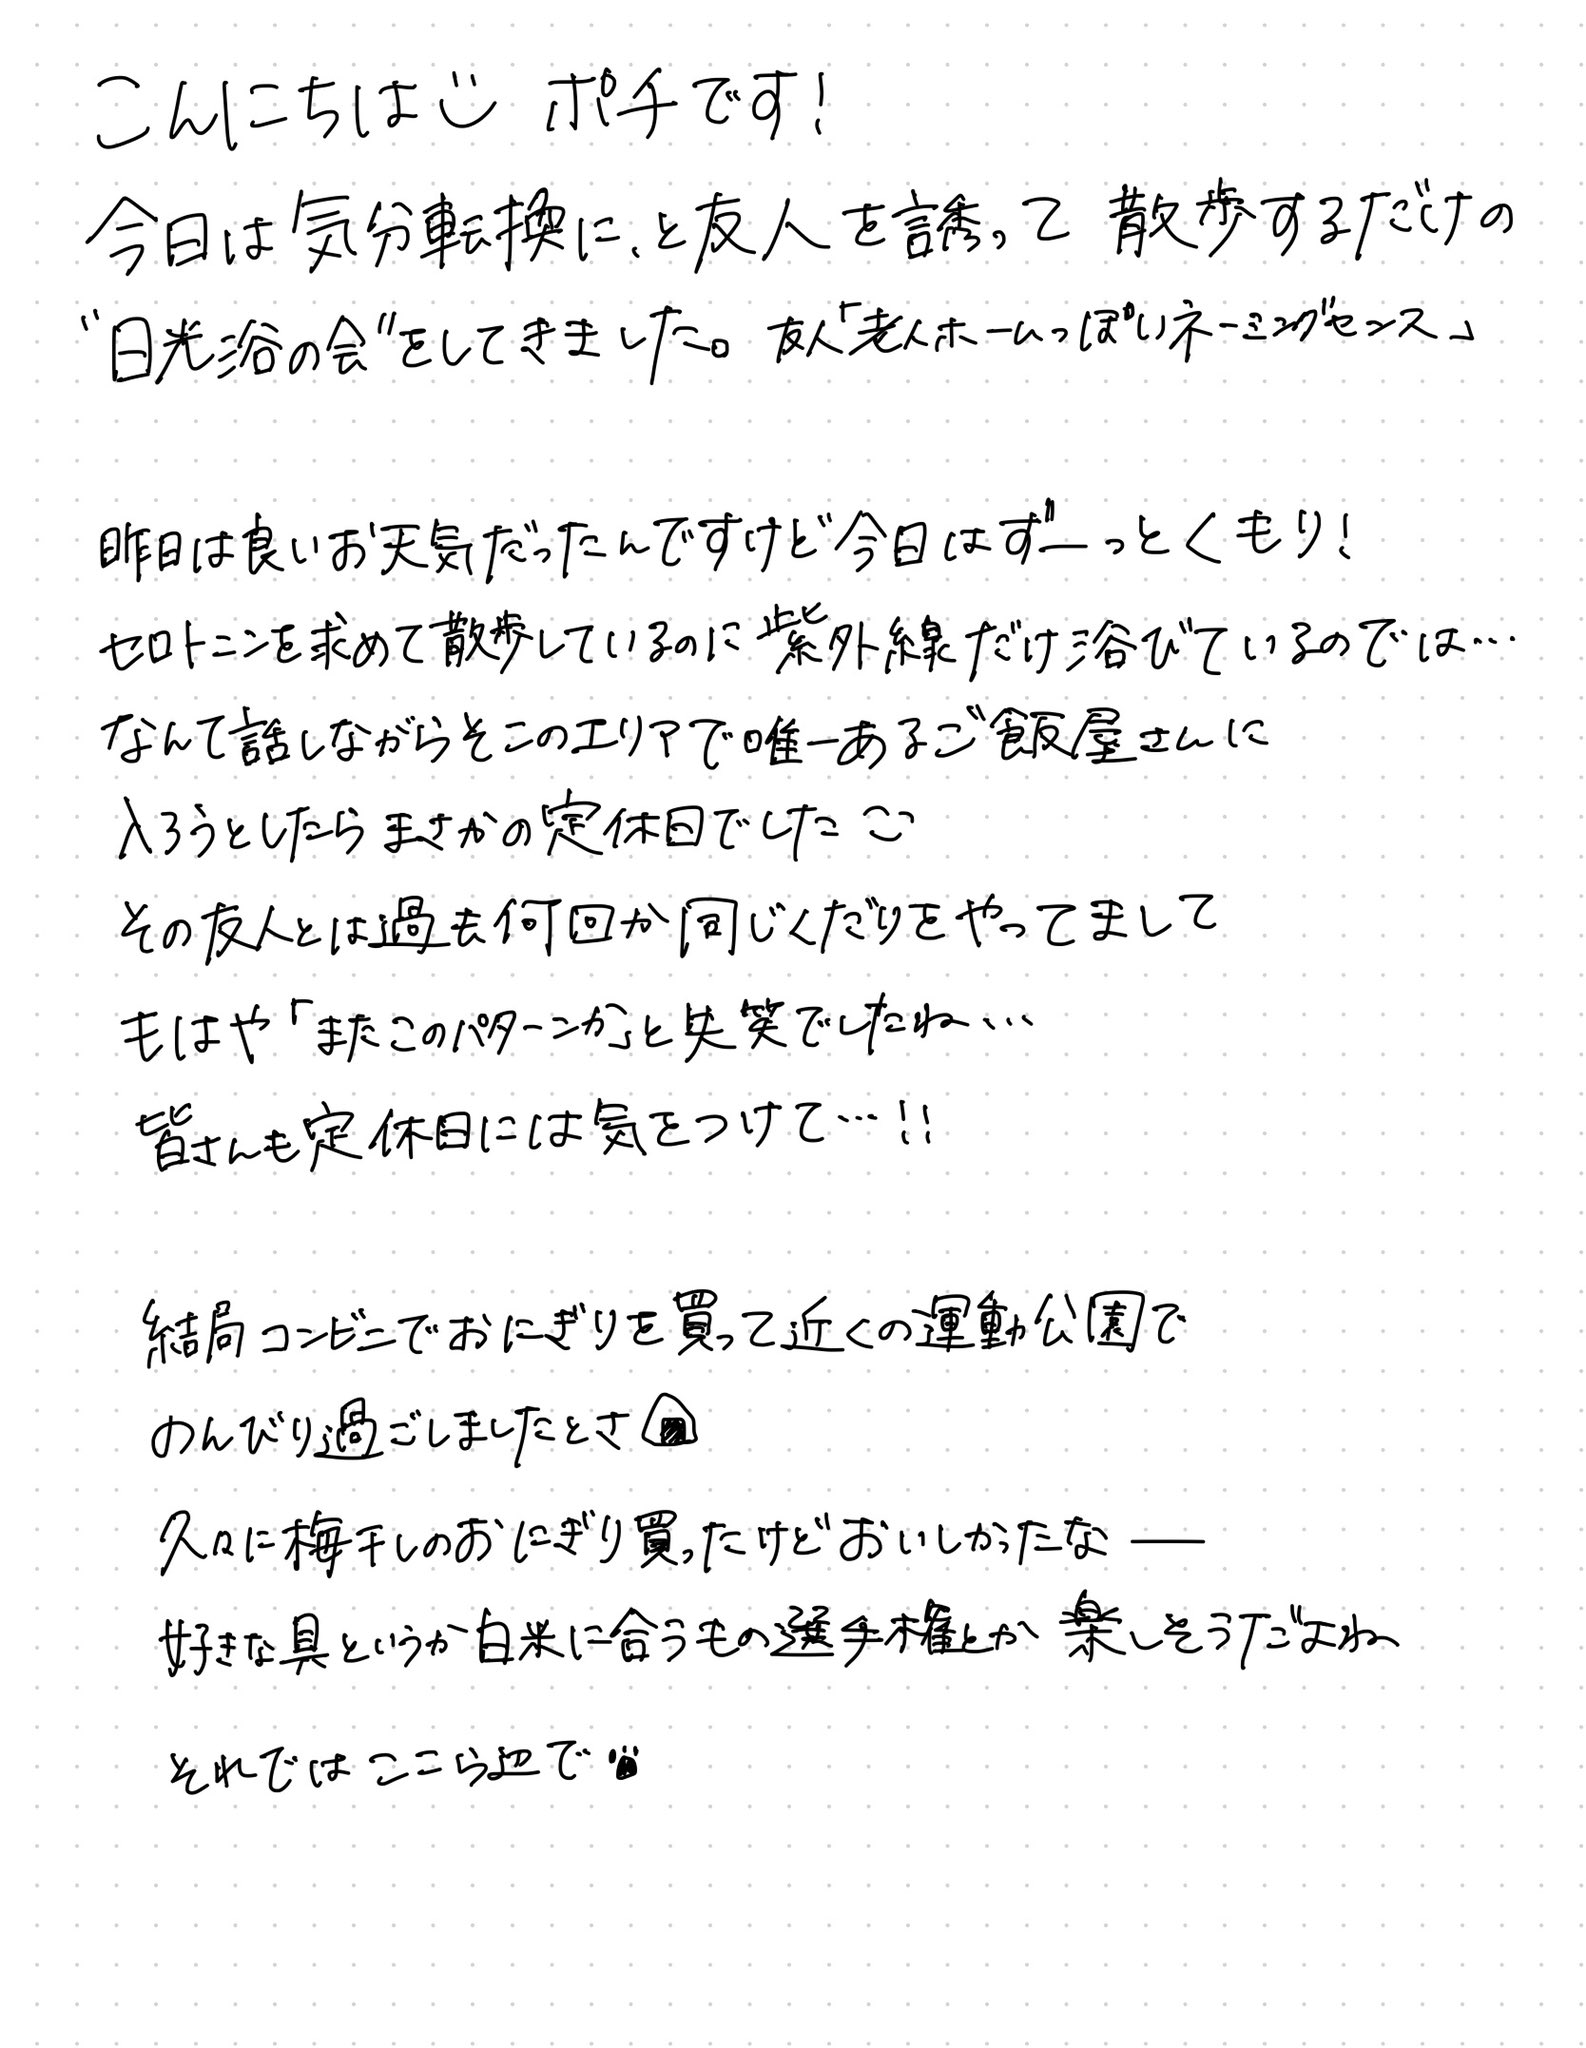 こんにちは ポチです!
今日は気分転換に、と友人を誘って 散歩するだけの
"日光浴の会"をしてきました。友人「老人ホームっぽいネーミングセンス」
昨日は良いお天気だったんですけど今日はずーっとくもり!
セロトニンを求めて散歩しているのに紫外線だけ浴びているのでは…
なんて話しながらそこのエリアで唯一あるご飯屋さんに
入ろうとしたらまさかの定休日でした
その友人とは過去何回か同じくだりをやってまして
もはや「またこのパターンか」と失笑でしたね…
皆さんも定休日には気をつけて…!!
結局コンビニでおにぎりを買って近くの運動公園で
のんびり過ごしましたとさ
久々に梅干しのおにぎり買ったけどおいしかったなー
好きな具というか白米に合うもの選手権とか楽しそうだよね
それではここら辺で